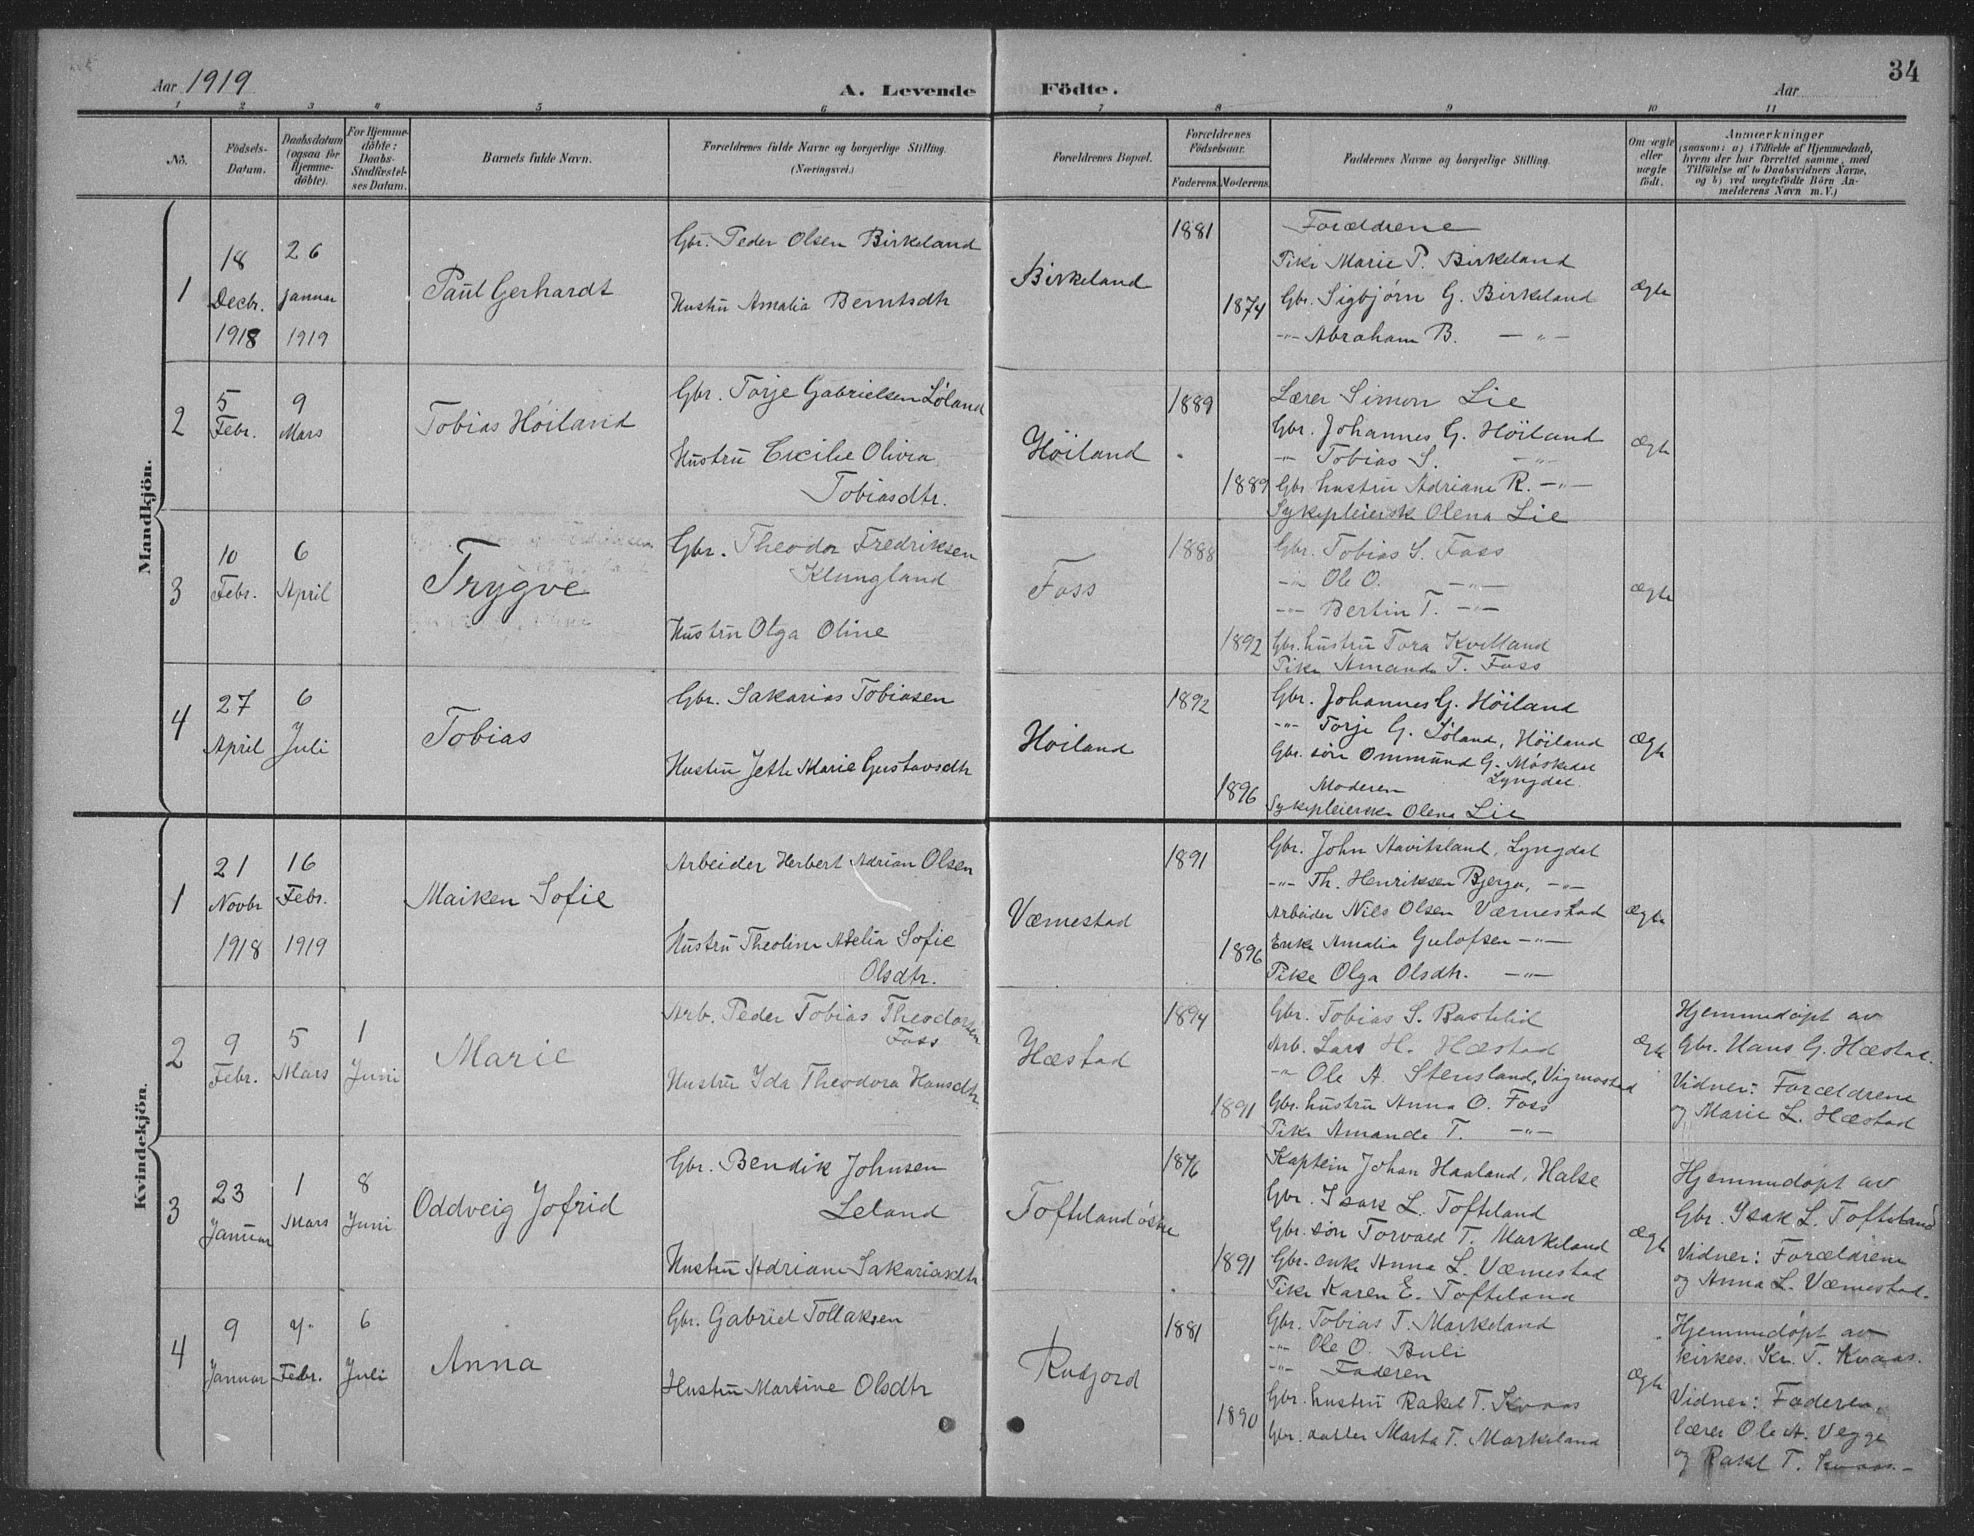 Aar 1919
A. Levende Födte.
34
Aar
1 2 3 4 5 6 7 8 9 10 11
Nö.
Födsels-
Datum.
Daabsdatum
(ogsaa for
Hjemme-
döbte).
For Hjemme-
döbte:
Daabs-
Stadfæstel-
ses Datum.
Barnets fulde Navn.
Forældrenes fulde Navne og borgerlige Stilling.
(Næringsvei.)
Forældrenes Bopæl.
Forældrenes
Födselsaar.
Faderens. Moderens.
Faddernes Navne og borgerlige Stilling.
Om ægte
eller
uægte
født.
Anmærkninger
(saasom: a) i Tilfælde af Hjemmedaab,
hvem der har forrettet samme, med
Tilföielse af to Daabsvidners Navne,
og b) ved uægtefödte Börn An-
melderens Navn m. V.)
Mandkjön.
1
18
Decbr.
1918
26
Januar
1919
Paul Gerhardt
Gbr. Peder Olsen Birkeland
Hustru Amalia Berntsdtr
Birkeland
1881
1874
Forældrene
Pike Marie P. Birkeland
Gbr. Sigbjørn G. Birkeland
-"- Abraham B. — " —
Ægte
2
5
Febr.
9
Mars
Tobias Höiland
Gbr. Torje Gabrielsen Løland
Hustru Cecilie Olivia
Tobiasdtr.
Höiland
1889
1889
Lærer Simon Lie
Gbr. Johannes G. Höiland
" Tobias S. -"-
Gbr hustru Adriane R. -"-
Sykepleiersk Olena Lie
Ægte
3
10
Febr.
6
April
Trygve
Gbr. Theodor Fredriksen
Klungland
Hustru Olga Oline
Foss
1888
1892
Gbr. Tobias S. Foss
-"- Ole O. -"-
-"- Bertin T. -"-
Gbr. hustru Tora Kvilland
Pike Amanda T. Foss
Ægte
4
27
April
6
Juli
Tobias
Gbr. Sakarias Tobiasen
Hustru Jette Marie Gustavsdtr
Höiland
1892
1896
Gbr. Johannes G. Höiland
-"- Torje G. Løland, Höiland
Gbr. søn Ommund G. Møskedal
Lyngdal.
Moderen
Sykepleierske Olena Lie
Ægte
Kvindekjön.
1
21
Novbr
1918
16
Febr.
1919
Maiken Sofie
Arbeider Herbert Adrian Olsen
Hustru Theoline Atelia Sofie
Olsdtr.
Væmestad
1891
1896
Gbr. John Aavitsland, Lyngdal
-"- Th. Henriksen Bjerga, -"-
Arbeider Nils Olsen Væmestad
Enke Amalia Gulofsen -"-
Pike Olga Olsdtr. -"-
Ægte
2
9
Febr.
5
Mars
1
Juni
Marie
Arb. Peder Tobias Theodorsen
Foss
Hustru Ida Theodora Hansdtr.
Hæstad
1894
1891
Gbr. Tobias S. Bastelid
Arb. Lars H. Hæstad
-"- Ole A. Stensland, Vigmostad
Gbr. hustru Anna O. Foss
Pike Amanda T. -"-
Ægte
Hjemmedøpt av
Gbr. Hans G. Hæstad.
Vidner: Forældrene
og Marie L. Hæstad
3
23
Januar
1
Mars
8
Juni
Oddveig Jofrid
Gbr. Bendik Johnsen
Leland
Hustru Adriane Sakariasdtr
Tofteland østre
1876
1891
Kaptein Johan Haaland, Halse
Gbr. Isak L. Tofteland
Gbr. søn Torvald T. Markeland
Gbr. enke Anna L. Væmestad
Pike Karen E. Tofteland
Ægte
Hjemmedøpt av
Gbr. Isak L. Tofteland
Vidner: Forældrene
og Anna L. Væmestad.
4
9
Januar
Febr.
6
Juli
Anna
Gbr. Gabriel Tollaksen
Hustru Martine Olsdtr
Rudjord
1881
1890
Gbr. Tobias T. Markeland
-"- Ole O. Buli
-"- Faderen
Gbr. hustru Rakel T. Kvaas
Gbr. datter Marta T. Markeland
Ægte
Hjemmedøpt av
kirkes. Kr. T. Kvaas.
Vidner: Faderen,
lærer Ole A. Vegge
og Rakel T. Kvaas-